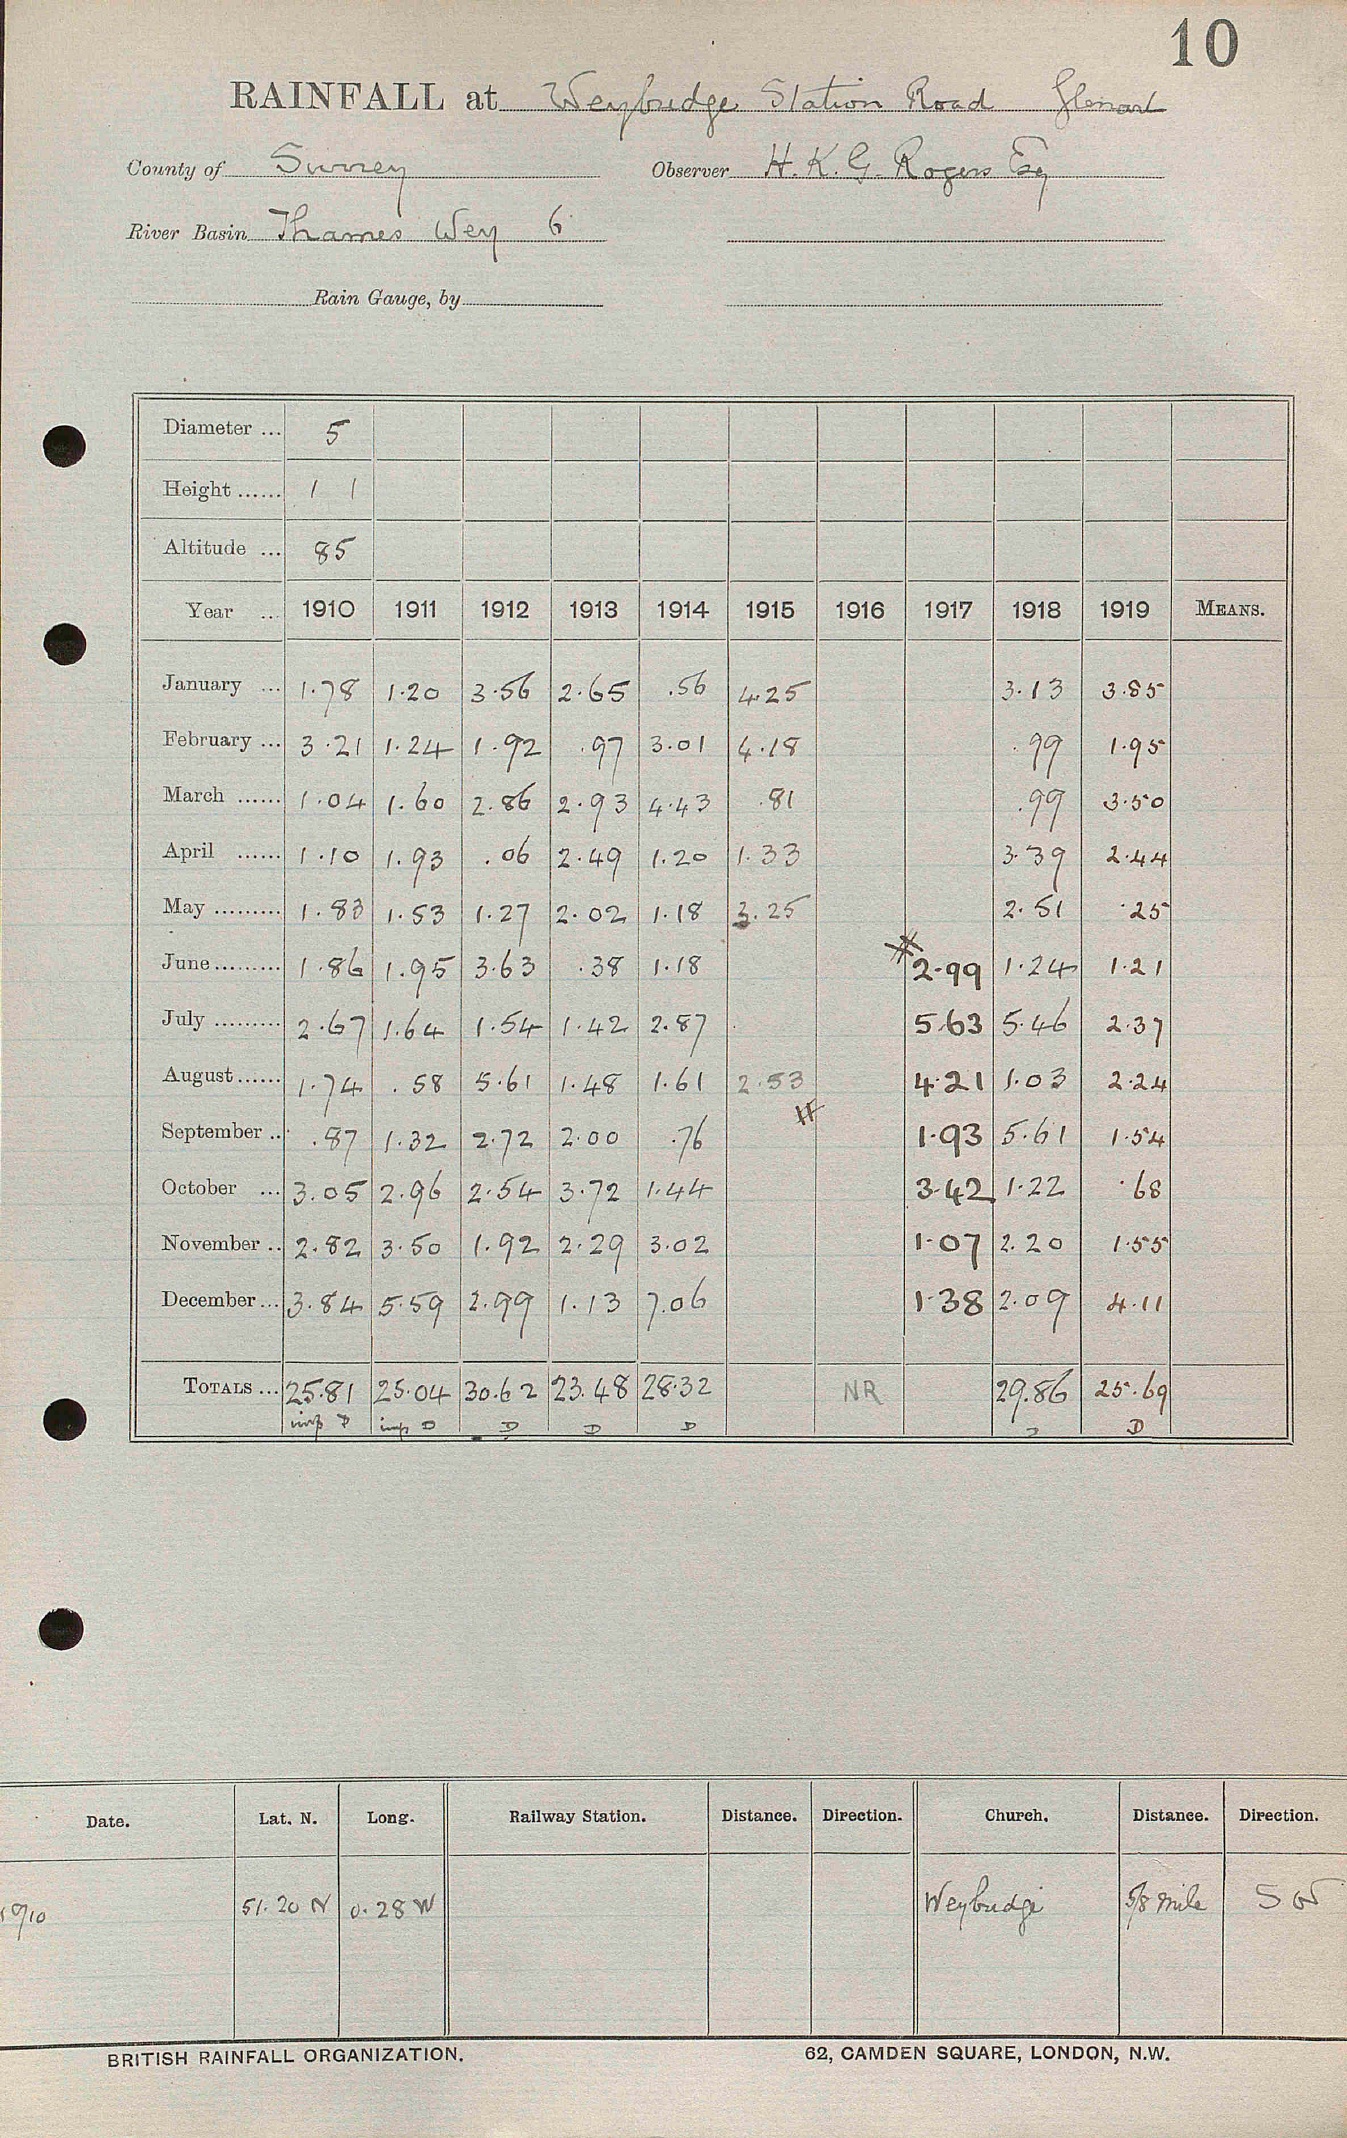 10
RAINFALL at Weybridge Station Road Glenart
County of Surrey Observer H. K. G. Rogers Esq
River Basin Thames Wey 6
Rain Gauge, by
Diameter ... 5
Height ...... 1 1
Altitude ... 85
Year ... 1910 1911 1912 1913 1914 1915 1916 1917 1918 1919 MEANS.
January ... 1.78 1.20 3.56 2.65 .56 4.25 3.13 3.85
February ... 3.21 1.24 1.92 .97 3.01 4.18 .99 1.95
March ...... 1.04 1.60 2.86 2.93 4.43 .81 .99 3.50
April ...... 1.10 1.93 .06 2.49 1.20 1.33 3.39 2.44
May ......... 1.83 1.53 1.27 2.02 1.18 3.25 2.51 .25
June ......... 1.86 1.95 3.63 .38 1.18 2.99 1.24 1.21
July ......... 2.67 1.64 1.54 1.42 2.87 5.63 5.46 2.37
August ...... 1.74 .58 5.61 1.48 1.61 2.53 4.21 1.03 2.24
September .. .87 1.32 2.72 2.00 .76 1.93 5.61 1.54
October ... 3.05 2.96 2.54 3.72 1.44 3.42 1.22 .68
November .. 2.82 3.50 1.92 2.29 3.02 1.07 2.20 1.55
December ... 3.84 5.59 2.99 1.13 7.06 1.38 2.09 4.11
TOTALS ... 25.81 25.04 30.62 23.48 28.32 NR 29.86 25.69
imp D imp D D D D D
Date. Lat. N. Long. Railway Station. Distance. Direction. Church. Distance. Direction.
51.20 N 0.28 W Weybridge 5/8 mile SW
BRITISH RAINFALL ORGANIZATION. 62, CAMDEN SQUARE, LONDON, N.W.